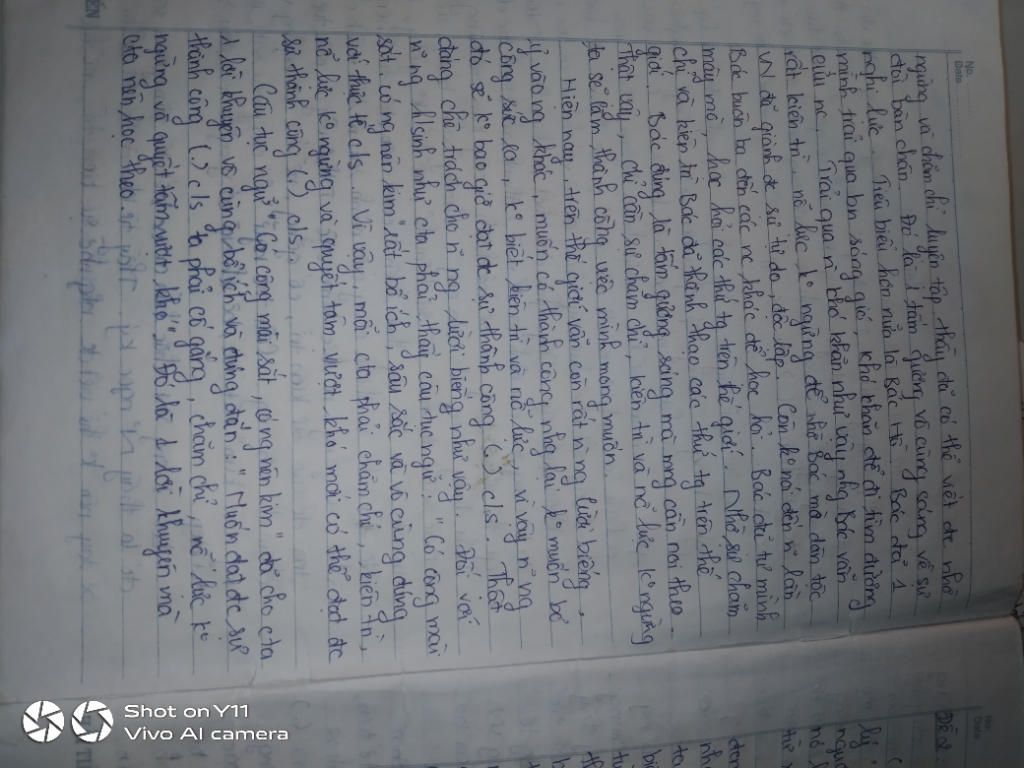 No.
Date
ngừng và chăm chỉ luyện tập, thầy đã có thể viết đc nhờ
đôi bàn chân. Đó là 1 tấm gương vô cùng sáng về sự
nghị lực. Tiêu biểu hơn nữa là Bác Hồ. Bác đã 1
mình trải qua bn sóng gió, khó khăn để đi tìm đường
cứu nc. Trải qua n khó khăn như vậy nhg Bác vẫn
rất kiên trì, nỗ lực, k° ngừng để nhờ Bác mà dân tộc
VN đã giành đc sự tự do, độc lập. Còn k° nói đến n lần
Bác buôn ba đến các nc khác để học hỏi. Bác đã tự mình
mày mò, học hỏi các thứ tg trên thế giới. Nhờ sự chăm
chỉ và kiên trì Bác đã thành thạo các thứ tg trên thế
giới. Bác đúng là tấm gương sáng mà mng cần noi theo.
Thật vậy, chỉ cần sự chăm chỉ, kiên trì và nỗ lực k° ngừng
ta sẽ làm thành công việc mình mong muốn.
Hiện nay, trên thế giới vẫn còn rất n ng lười biếng,
ỷ vào ng khác, muốn có thành công nhg lại k° muốn bỏ
công sức ra, k° biết kiên trì và nỗ lực, vì vậy n ng
đó sẽ k° bao giờ đạt đc sự thành công (.) c/s. Thật
đáng chê trách cho n ng lười biếng như vậy. Đối với
n ng h/sinh như cta phải thấy câu tục ngữ: "Có công mài
sắt, có ng nên kim" rất bổ ích, sâu sắc và vô cùng đúng
với thực tế c/s. Vì vậy, mỗi cta phải chăm chỉ, kiên trì,
nỗ lực k° ngừng và quyết tâm vượt khó mới có thể đạt đc
sự thành công (.) c/s.
Câu tục ngữ "Có công mài sắt, có ng nên kim" đã cho cta
1 lời khuyên vô cùng bổ ích và đúng đắn "Muốn đạt đc sự
thành công (.) c/s ta phải cố gắng, chăm chỉ, nỗ lực k°
ngừng và quyết tâm vượt khó". Đó là 1 lời khuyên mà
cta nên học theo
Shot on Y11
Vivo AI camera